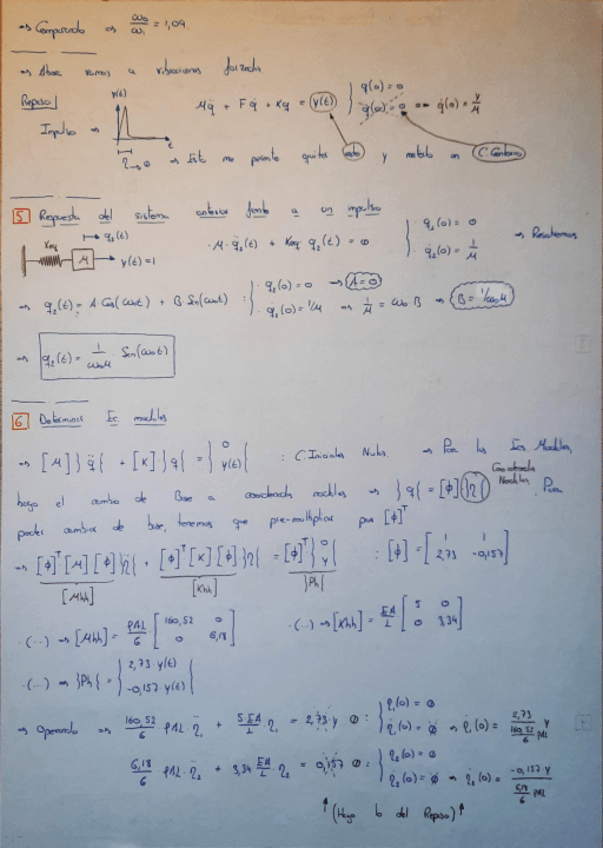 → Comparando ⇒ ω₀/ω₁ = 1,09.
→ Ahora vamos a vibraciones forzadas
Repaso] γ(t) Mq̈ + Fq̇ + Kq = γ(t) } q(0) = 0
q̇(0) = 0 ⇒ q̇(0) = γ/M
Impulso ⇒ t
η→0 ⇒ Esto me permite quitar esto y meterlo en C. Contorno
5 Respuesta del sistema anterior frente a un impulso
Keq M → q₂(t) γ(t) = 1 · M · q̈₂(t) + Keq · q₂(t) = 0 { · q₂(0) = 0
· q̇₂(0) = 1/M → Resolvemos
⇒ q₂(t) = A Cos(ω₀t) + B Sen(ω₀t) : { · q₂(0) = 0 ⇒ A = 0
· q̇₂(0) = 1/M ⇒ 1/M = ω₀ B ⇒ B = 1/ω₀M
⇒ q₂(t) = 1/ω₀M · Sen(ω₀t)
6 Determinar Ec. modales
⇒ [M] }q̈{ + [K] }q{ = } 0
γ(t) { : C. Iniciales Nulas. → Para las Ecs. Modales,
hago el cambio de Base a coordenadas modales ⇒ }q{ = [ϕ] }η{ Coordenadas Modales . Para
poder cambiar de base, tenemos que pre-multiplicar por [ϕ]ᵀ
⇒ [ϕ]ᵀ[M][ϕ] }η̈{ + [ϕ]ᵀ[K][ϕ] }η{ = [ϕ]ᵀ } 0 γ { : [ϕ] = [ 1 1
2,73 -0,157 ]
[Mhh] [Khh] }Ph{
· (...) ⇒ [Mhh] = ρAL/6 · [ 160,52 0
0 6,18 ] · (...) ⇒ [Khh] = EA/L · [ 5 0
0 3,34 ]
· (...) ⇒ }Ph{ = } 2,73 · γ(t)
-0,157 · γ(t) {
⇒ Operando ⇒ 160,52/6 ρAL · η̈₁ + 5·EA/L · η₁ = 2,73·γ 0 : } η₁(0) = 0
η̇₁(0) = 0 ⇒ η̇₁(0) = 2,73/(160,52/6 ρAL) γ
6,18/6 · ρAL · η̈₂ + 3,34 EA/L · η₂ = 0,157 0 : } η₂(0) = 0
η̇₂(0) = 0 ⇒ η̇₂(0) = -0,157·γ/(6,18/6 ρAL)
↑ (Hago lo del Repaso) ↑